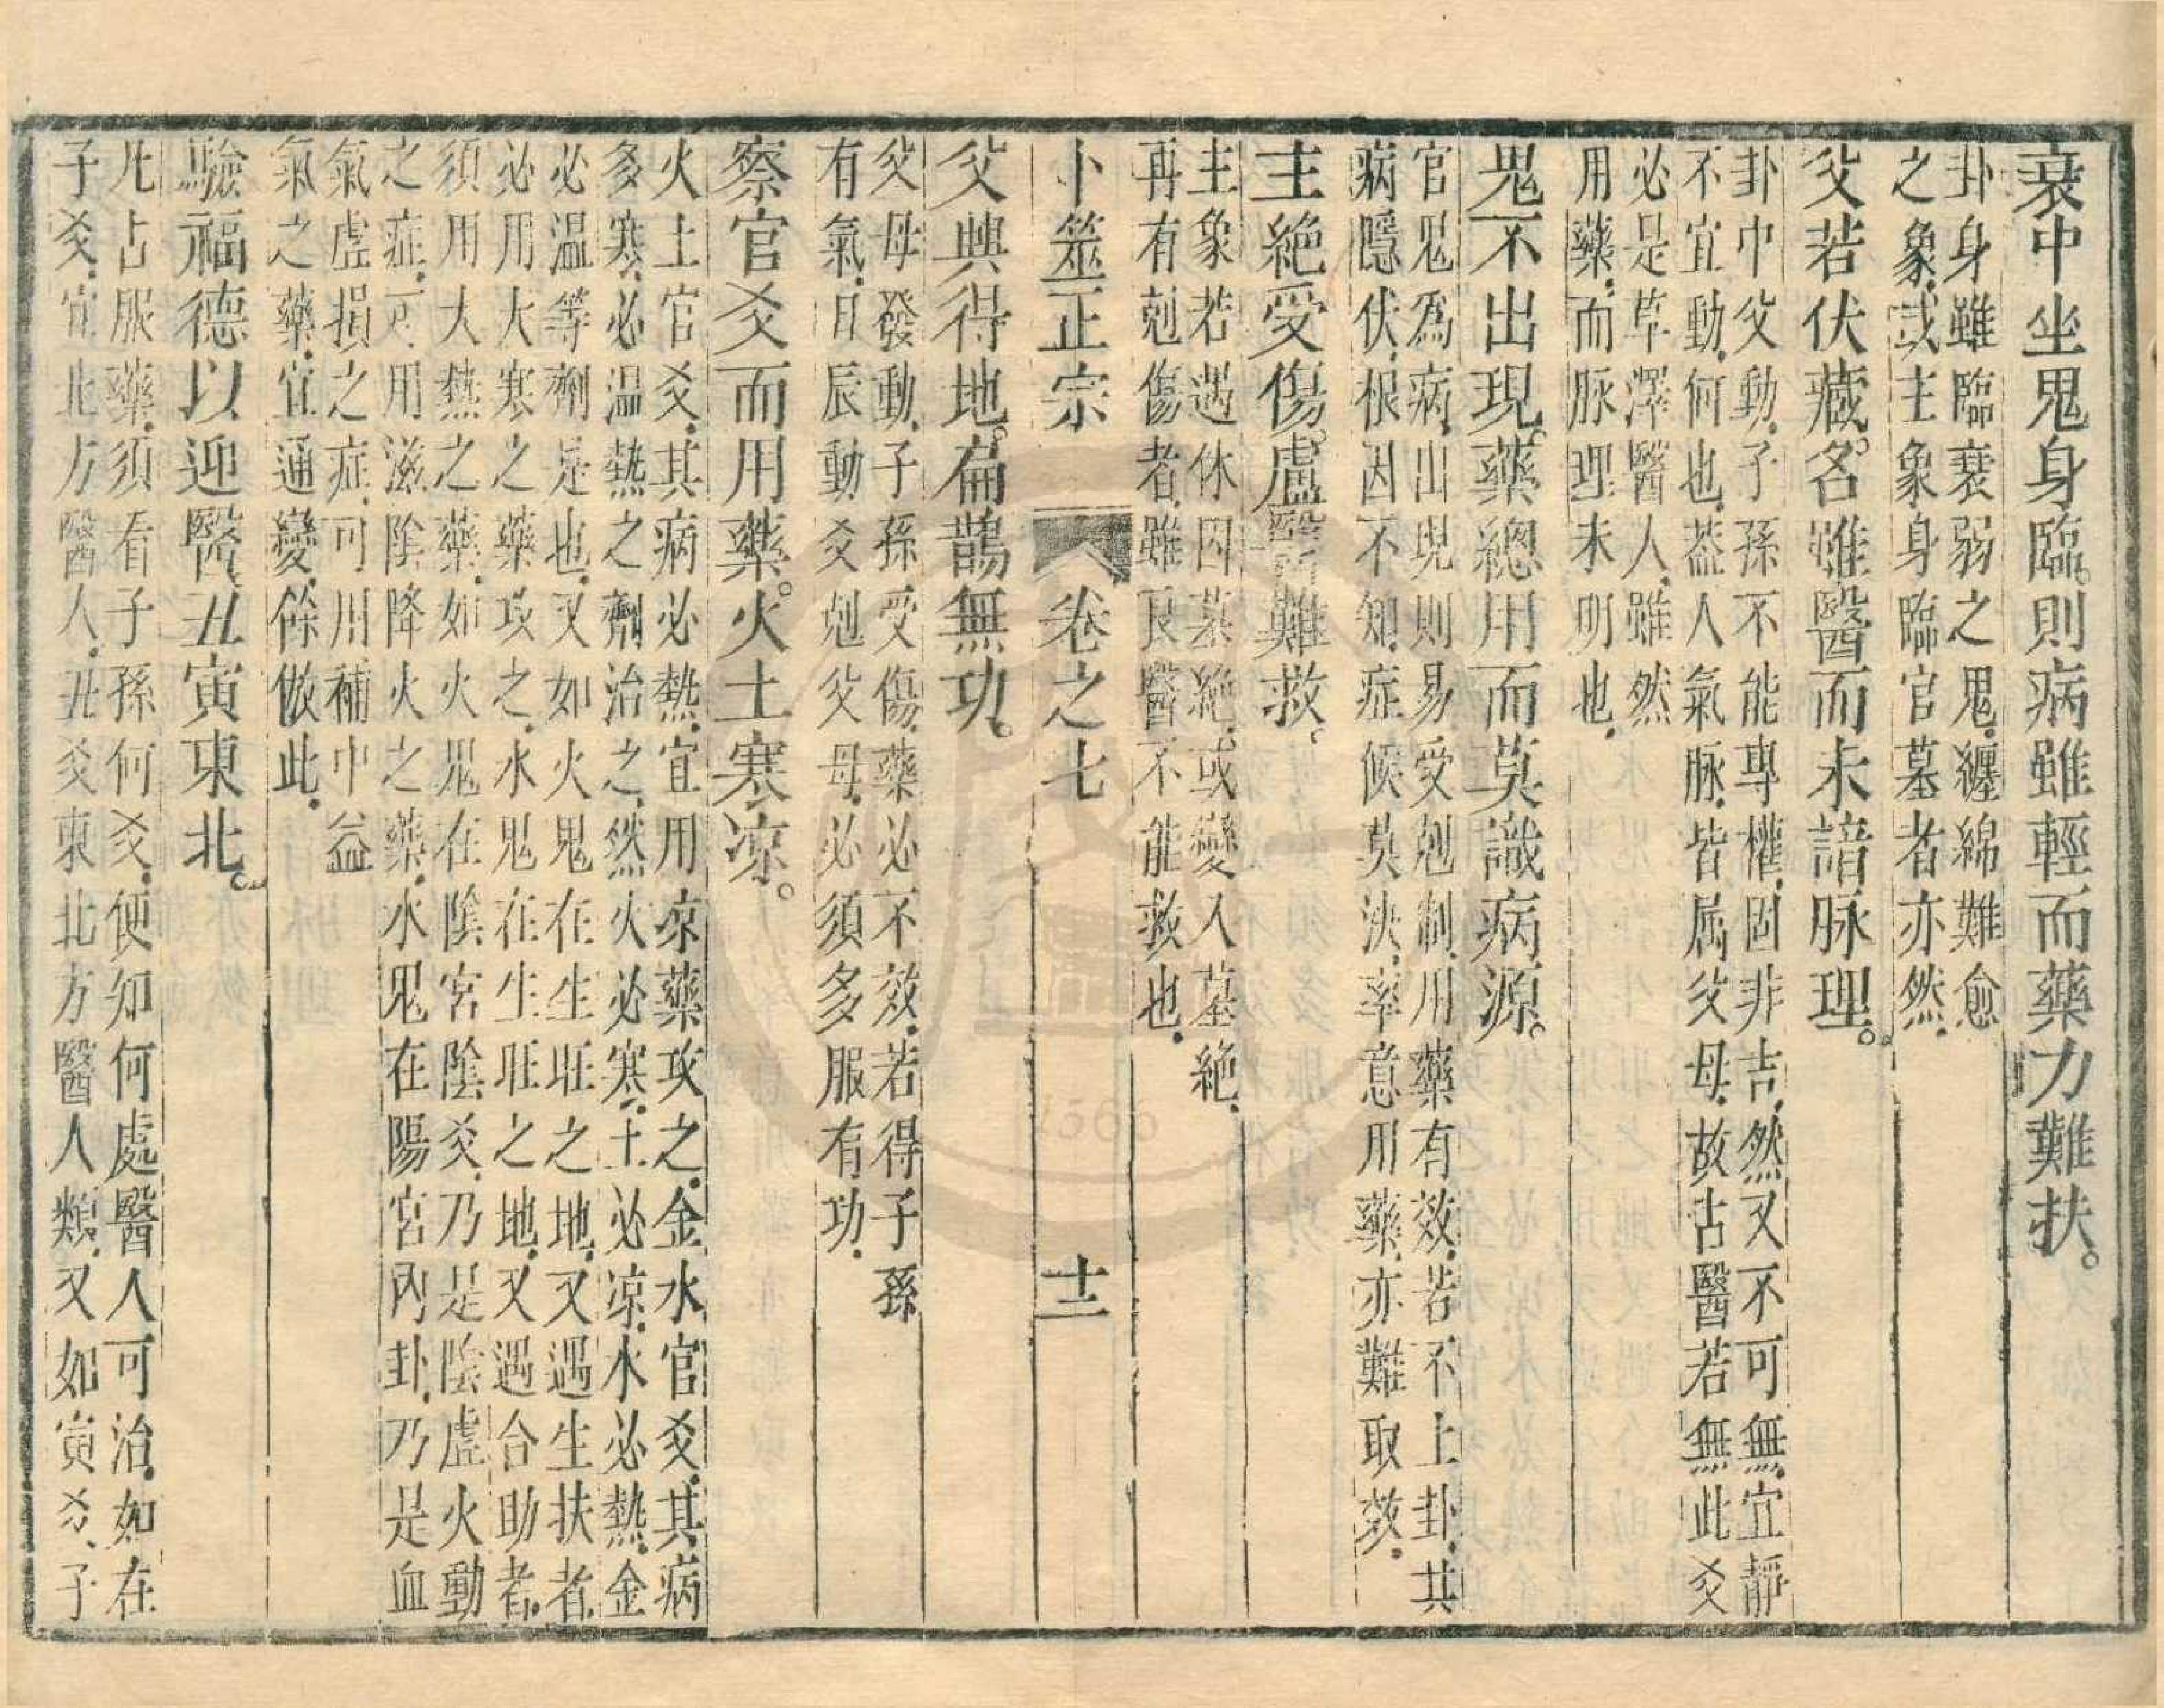 衰中坐鬼身臨。則病雖輕而藥力難扶。
卦身雖臨衰弱之鬼。纏綿難愈
之象。或主象身臨官墓者亦然。
父若伏藏。名雖醫而未諳脉理。
卦中父動。子孫不能專權。固非吉。然又不可無。宜靜
不宜動。何也。葢人氣脉。皆属父母。故古醫若無此爻
必是草澤醫人。雖然
用藥。而脉理未明也。
鬼不出現。藥總用而莫識病源。
官鬼爲病。出現則易受剋制。用藥有效。若不上卦。其
病隱伏。根因不知。症候莫決。率意用藥。亦難取効。
主絶受傷。盧醫難救。
主象若遇休囚墓絶。或變入墓絶。
再有剋傷者。雖良醫不能救也。
卜筮正宗 卷之七 十二
父興得地。扁鵲無功。
父母發動。子孫受傷。藥必不效。若得子孫
有氣。日辰動爻剋父母。必須多服有功。
察官爻而用藥。火土寒凉。
火土官爻。其病必熱。宜用凉藥攻之。金水官爻。其病
多寒。必温熱之劑治之。然火必寒。土必凉。水必熱。金
必温等劑是也。又如火鬼在生旺之地。又遇生扶者。
必用大寒之藥攻之。水鬼在生旺之地。又遇合助者。
須用大熱之藥。如火鬼在陰宮陰爻。乃是陰虛火動
之症。可用滋陰降火之藥。水鬼在陽宮內卦。乃是血
氣虛損之症。可用補中益
氣之藥。宜通變。餘倣此。
驗福德以迎醫。丑寅東北。
凡占服藥。須看子孫何爻。便知何處醫人可治。如在
子爻。宜北方醫人。丑爻東北方醫人類。又如寅爻。子